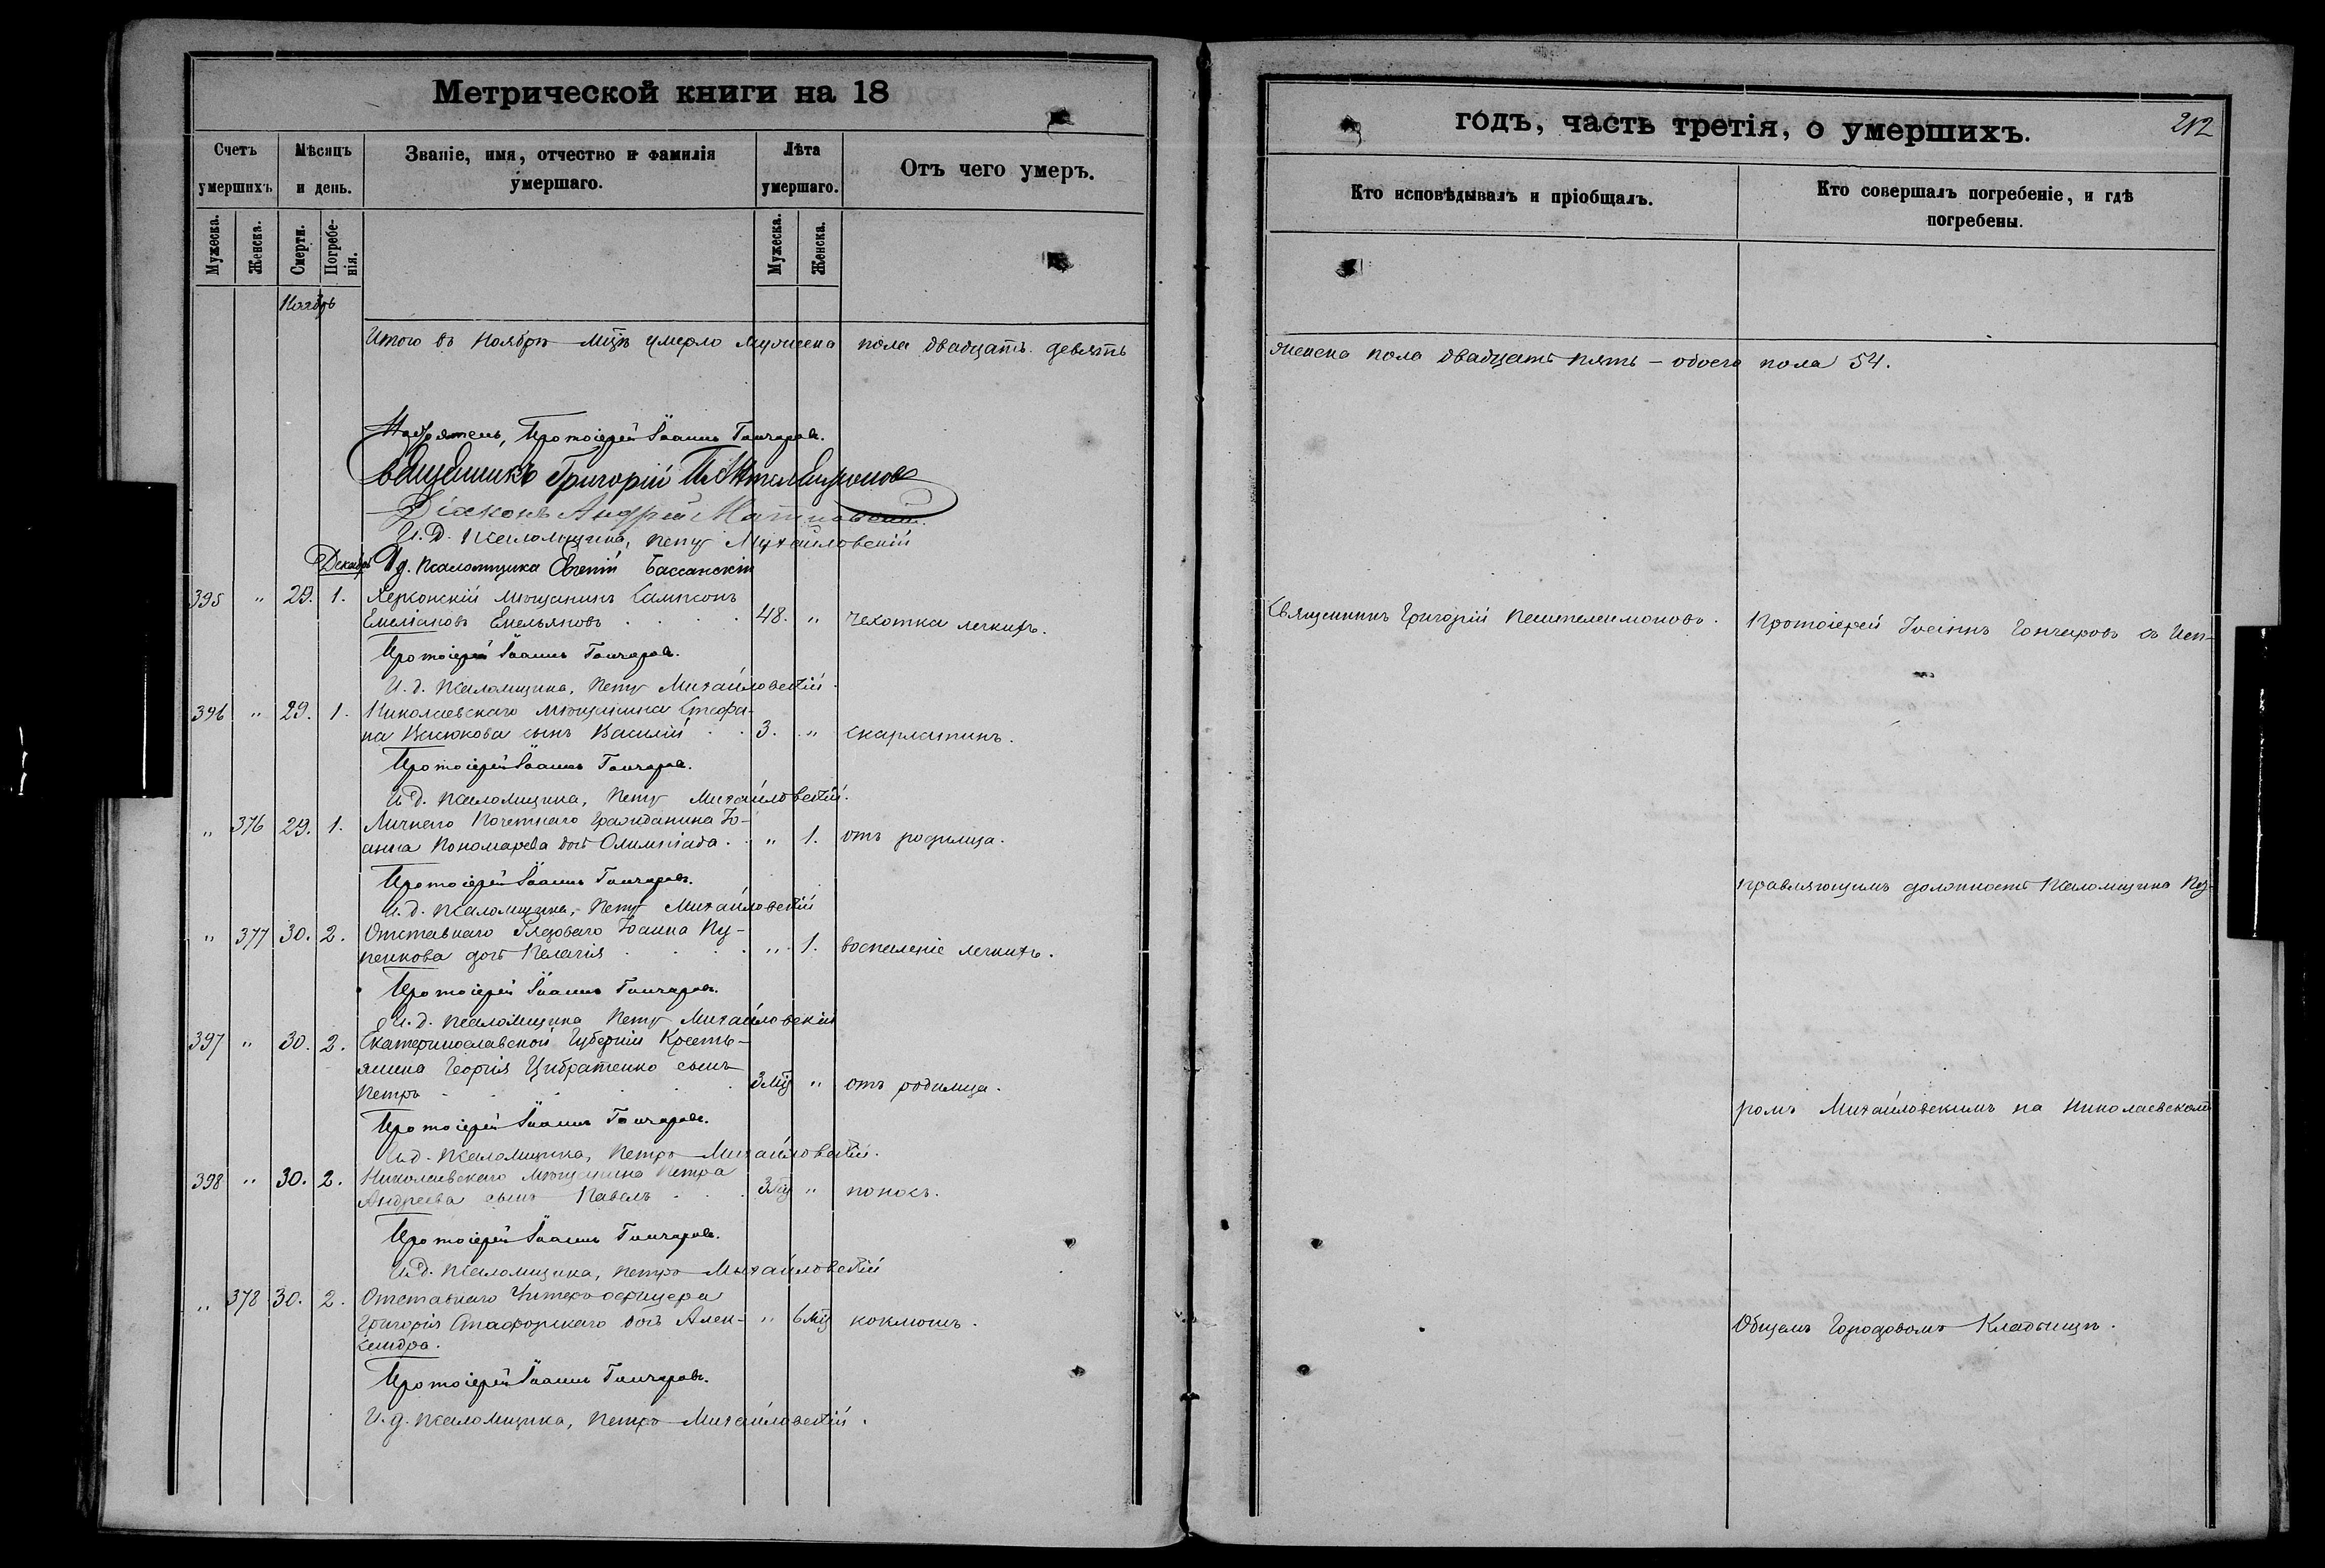 Метрической книги на 18
Счетъ умершихъ.
Мѣсяцъ и день.
Званіе, имя, отчество и фамилія умершаго.
Лѣта умершаго.
Отъ чего умеръ.
Мужеска.
Женска.
Смерти.
Погребенія.
Мужеска.
Женска.
Ноябрь
Итого въ Ноябрѣ мцѣ умерло мужеска пола двадцать девять
Протоіерей Іоаннъ Гончаровъ.
Священникъ Григорій Пантелеимоновъ
Діаконъ Андрей
И. д. псаломщика, Петръ Михайловскій
Декабрь И д. псаломщика Евгеній Бассанскій
395 " 29. 1. Херсонскій мѣщанинъ Сампсонъ
Емеліановъ Емельяновъ . . . 48. " чехотка легкихъ.
Протоіерей Іоаннъ Гончаровъ.
И. д. псаломщика, Петръ Михайловскій.
396 " 29. 1. Николаевскаго мѣщанина Стефа-
на сынъ Василій . . 3. " скарлатинъ.
Протоіерей Іоаннъ Гончаровъ.
И. д. псаломщика, Петръ Михайловскій.
" 376 29. 1. Личнаго Почетнаго Гражданина Іо-
анна Пономарева дочь Олимпіада . . " 1. отъ родимца.
Протоіерей Іоаннъ Гончаровъ.
И. д. псаломщика, Петръ Михайловскій
" 377 30. 2. Отставнаго Рядоваго Іоанна Пу-
пенкова дочь Пелагія . . . " 1. воспаленіе легкихъ.
Протоіерей Іоаннъ Гончаровъ.
И. д. псаломщика Петръ Михайловскій
397 " 30. 2. Екатеринославской Губерніи Кресть-
янина Георгія Цибратенко сынъ
Петръ . . . 3 мц " отъ родимца.
Протоіерей Іоаннъ Гончаровъ.
И. д. псаломщика, Петръ Михайловскій.
398 " 30. 2. Николаевскаго мѣщанина Петра
Андреева сынъ Павелъ . . . 3 мц " поносъ.
Протоіерей Іоаннъ Гончаровъ.
И. д. псаломщика, Петръ Михайловскій
" 378 30. 2. Отставнаго Унтеръ-офицера
Григорія дочь Алек- " 6 мц коклюшъ.
сандра.
Протоіерей Іоаннъ Гончаровъ.
И. д. псаломщика, Петръ Михайловскій.
годъ, часть третія, о умершихъ.
212
Кто исповѣдывалъ и пріобщалъ.
Кто совершалъ погребеніе, и гдѣ погребены.
женска пола двадцать пять - обоего пола 54.
Священникъ Григорій Пантелеимоновъ.
Протоіерей Іоаннъ Гончаровъ съ Исп-
правляющимъ должность Псаломщика Пет-
ромъ Михайловскимъ на Николаевскомъ
Общемъ Городовомъ Кладбищѣ.